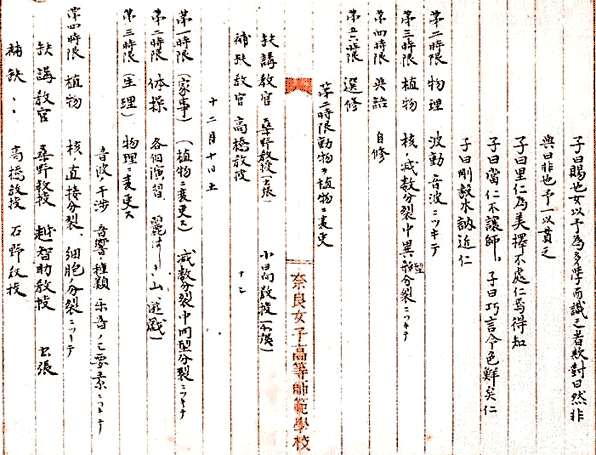 子曰賜也女以予為多学而識之者歟對曰然非
與曰非也予一以貫之
子曰里仁為美擇不處仁焉得知
子曰當仁不讓師。子曰巧言令色鮮矣仁
子曰剛毅木訥近仁
第二時限 物理 波動 音波ニツキテ
第三時限 植物 核・減数分裂中異型分裂ニツキテ
第四時限 英語 自修
第五六時限 選修
第二時限動物ヲ植物ニ変更
欠講教官 桑野教授(出張) 小島教授(出張)
補欠教官 高橋教授
奈良女子高等師範學校
十二月十日土
第一時限(家事)(植物ニ変更ス) 減数分裂中同型分裂ニツキテ
第二時限 体操 各個演習、麗はしき山(遊戯)
第三時限(生理) 物理ニ変更ス
音波ノ干渉 音響ノ種類 楽音ノ三要素ニツキテ
第四時限 植物 核ノ直接分裂 細胞分裂ニツキテ
欠講教官 桑野教授 越智助教授 出張
補欠〃〃 高橋教授 石野教授